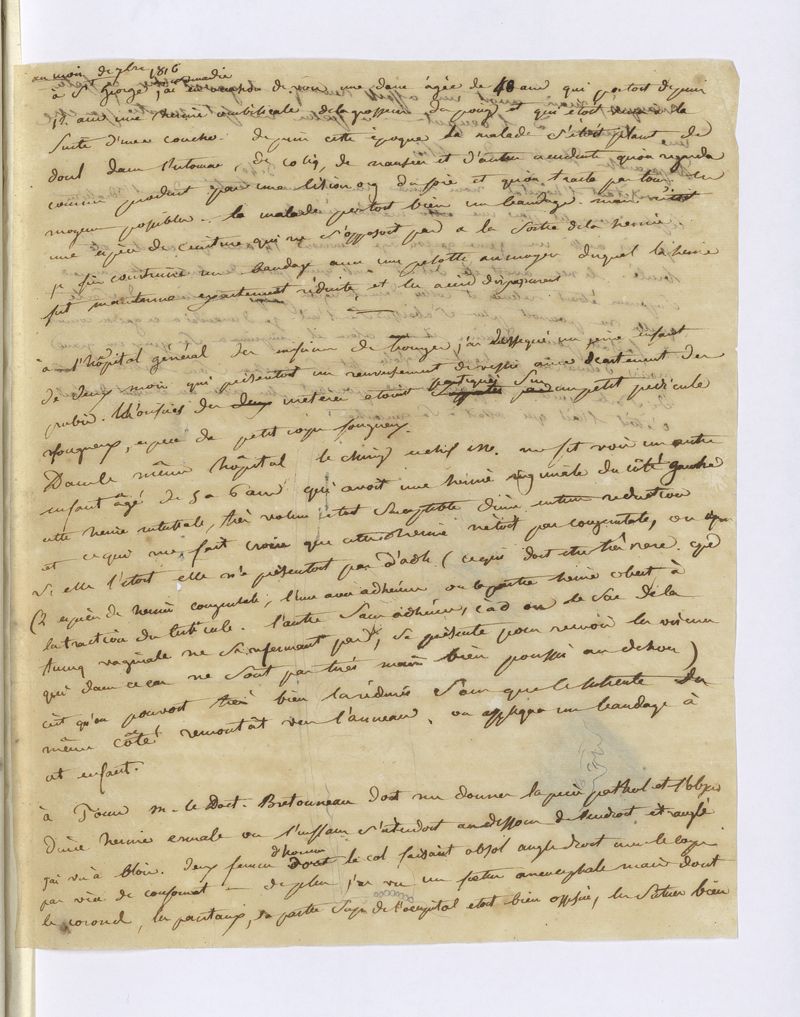 au mois de 7bre 1816
à St George, j'ai eu occasion de voir une dame agée de 40 ans qui portoit depuis
12 ans une hernie ombilicale de la grosseur du poing et qui étoit venue à la
suite d'une couche. depuis cette époque la malade s'étoit plaint de
doul dans l'estomac, de coliq, de nausées et d'autres accidents qu'on regarda
comme produit par une lésion org du pie et qu'on traita par tous les
moyens possibles. la malade portoit bien un bandage mais c'étoit
une espèce de ceinture qui ne s'opposoit pas a la sortie de la hernie
je fis construire un bandage avec une pelotte au moyen duquel la hernie
fut maintenue exactement réduite et les accid disparurent
à l'hôpital général des de j'ai disséqué un jeune enfant
de deux mois qui présentoit un renversement de vessie avec écartement des
pubis. les deux uretères étoient sur un petit pédicule
fongueux, espèce de petit corps fongueux.
Dans le même hôpital le chirug me fit voir un autre
enfant âgé de 5 a 6 ans qui avoit une hernie inguinale du côté gauche
cette hernie très volum étoit susceptible d'une entière réduction
et ce qui me fait croire que cette hernie n'étoit pas congénitale, ou que
si elle l'étoit elle ne présentoit pas d'adh (ce qui doit être très rare.
(2 espèces de hernies congénitale, l'une avec adhérence ou la partie hernie obeit à
la traction du testicule. l'autre sans adhérence, càd ou le sac de la
tuniq vaginale ne se refermant pas, se présente pour recevoir les viscères
qui dans ce cas ne sont pas tirés mais bien poussés au dehors)
c'est qu'on pouvoit très bien la réduire sans que le testicule du
même côté remontât vers l'anneau. on appliqua un bandage à
cet enfant.
à Tours m. le Doct. Bretonneau doit me donner la pièce pathol et l'obs
d'une hernie crurale ou l'intestin s'étendoit au dessous de l'endroit étranglé
j'ai vu à Blois deux femurs d'homme dont le col faisoit angle droit avec le corps
par vice de conformat — de plus j'ai vu un fœtus anencéphale mais dont
le coronal, les pariétaux, la partie sup de l'occipital etoit bien ossifiés, les sutures bien